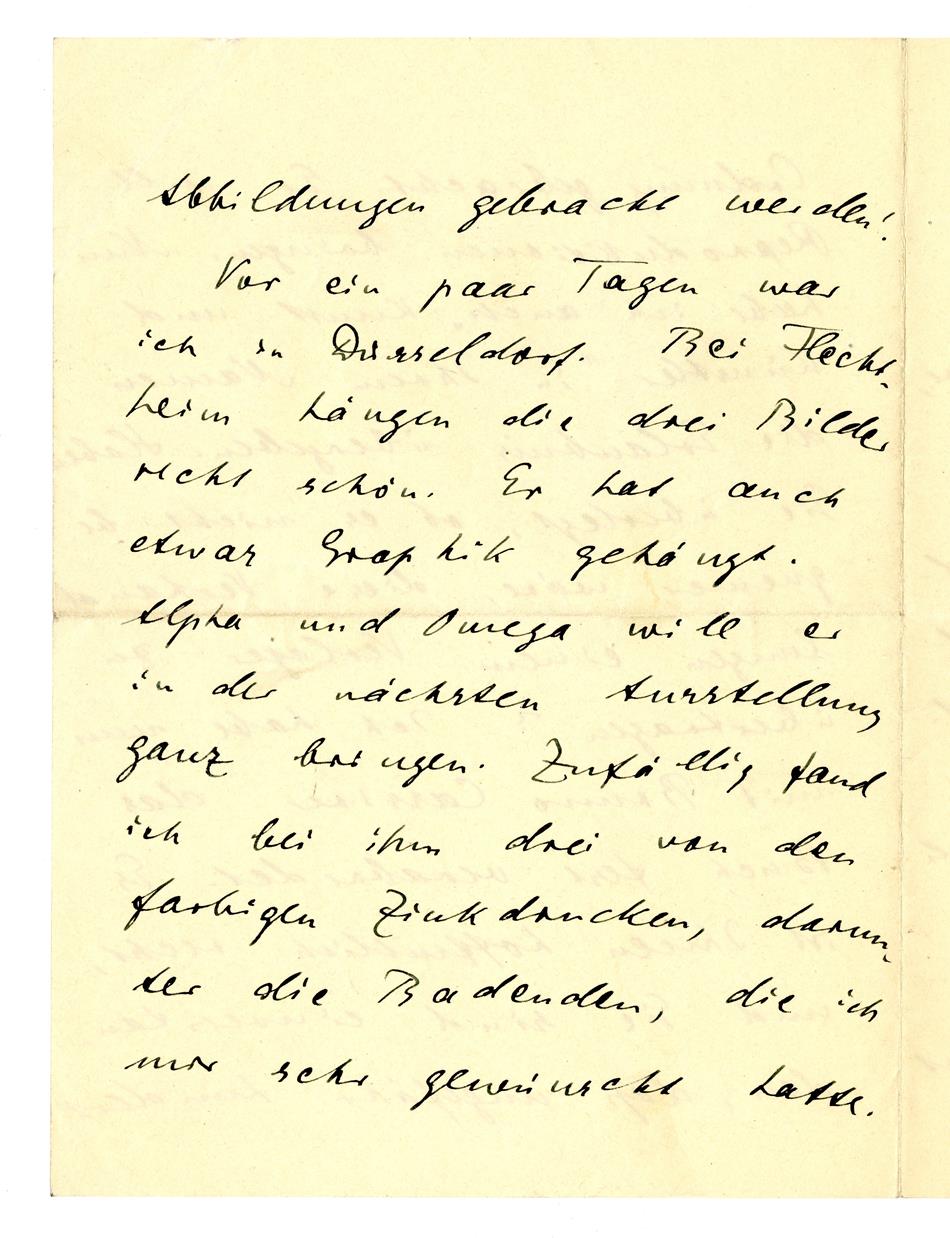 Abbildungen gebracht werden!
Vor ein paar Tagen war
ich in Düsseldorf. Bei Flecht-
heim hängen die drei Bilder
recht schön. Er hat auch
etwas Graphik gehängt.
Alpha und Omega will er
in der nächsten Ausstellung
ganz bringen. Zufällig fand
ich bei ihm drei von den
farbigen Zinkdrucken, darun-
ter die Badenden, die ich
mir sehr gewünscht hatte.